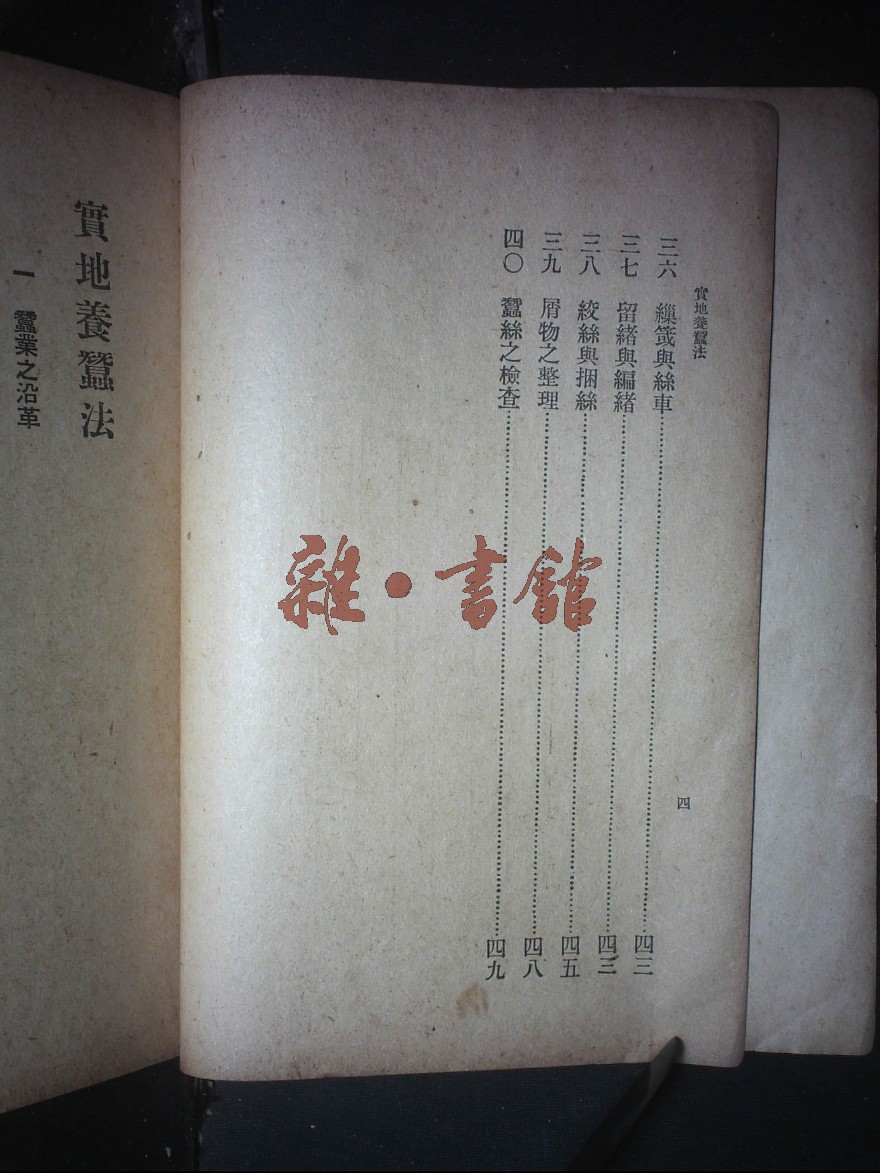 實地養蠶法
三六　繅箴與絲車……四三
三七　留緒與編緒……四三
三八　絞絲與捆絲……四五
三九　屑物之整理……四八
四〇　蠶絲之檢查……四九
四
實地養蠶法
一　蠶業之沿革
雜·書館